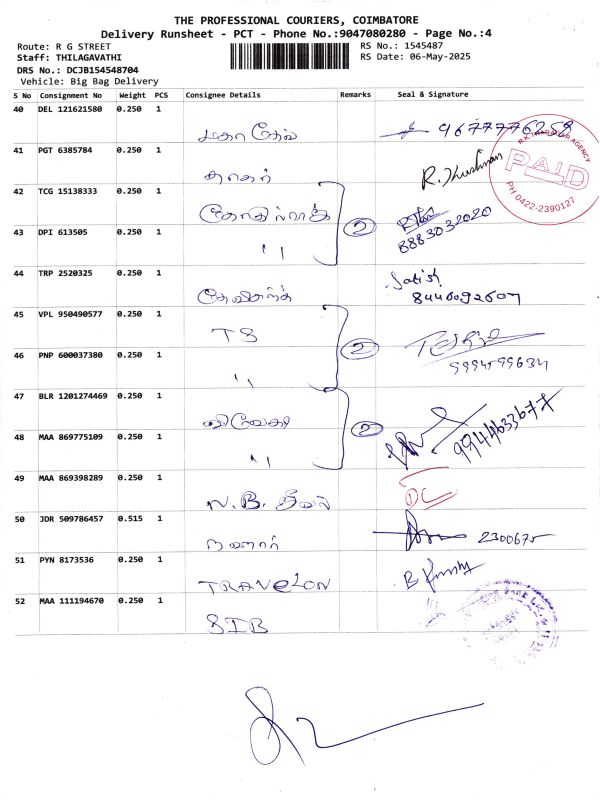 THE PROFESSIONAL COURIERS, COIMBATORE
Delivery Runsheet - PCT - Phone No.:9047080280 - Page No.:4
Route: R G STREET
Staff: THILAGAVATHI
DRS No.: DCJB154548704
Vehicle: Big Bag Delivery
RS No.: 1545487
RS Date: 06-May-2025
S No Consignment No Weight PCS Consignee Details Remarks Seal & Signature
40 DEL 121621580 0.250 1
மகாதேவ் 9677776258
41 PGT 6385784 0.250 1
R.K. AGENCY
PAID
PH 0422-2390127
42 TCG 15138333 0.250 1
2
43 DPI 613505 0.250 1
" 8883032020
44 TRP 2520325 0.250 1
Satish
8440092607
45 VPL 950490577 0.250 1
TS 2
46 PNP 600037380 0.250 1
" 9994599634
47 BLR 1201274469 0.250 1
2
48 MAA 869775109 0.250 1
" 9944633677
49 MAA 869398289 0.250 1
50 JDR 509786457 0.515 1
2300675
51 PYN 8173536 0.250 1
TRAVELON
52 MAA 111194670 0.250 1
SIB